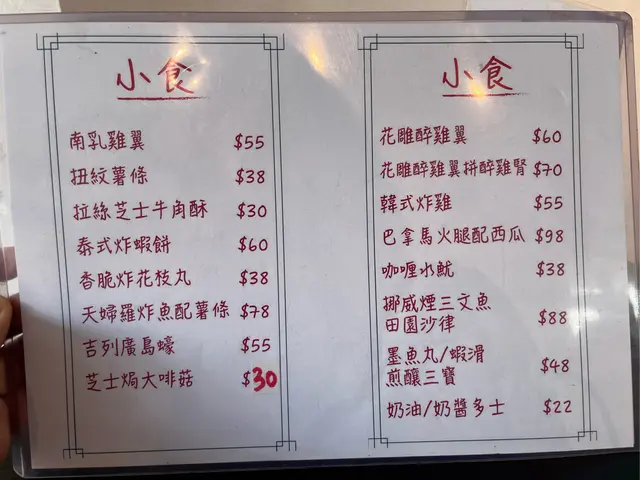 小食
南乳雞翼 $55
扭紋薯條 $38
拉絲芝士牛角酥 $30
泰式炸蝦餅 $60
香脆炸花枝丸 $38
天婦羅炸魚配薯條 $78
吉列廣島蠔 $55
芝士焗大啡菇 $30
小食
花雕醉雞翼 $60
花雕醉雞翼拼醉雞腎 $70
韓式炸雞 $55
巴拿馬火腿配西瓜 $98
咖喱水魷 $38
挪威煙三文魚
田園沙律 $88
墨魚丸/蝦滑
煎釀三寶 $48
奶油/奶醬多士 $22